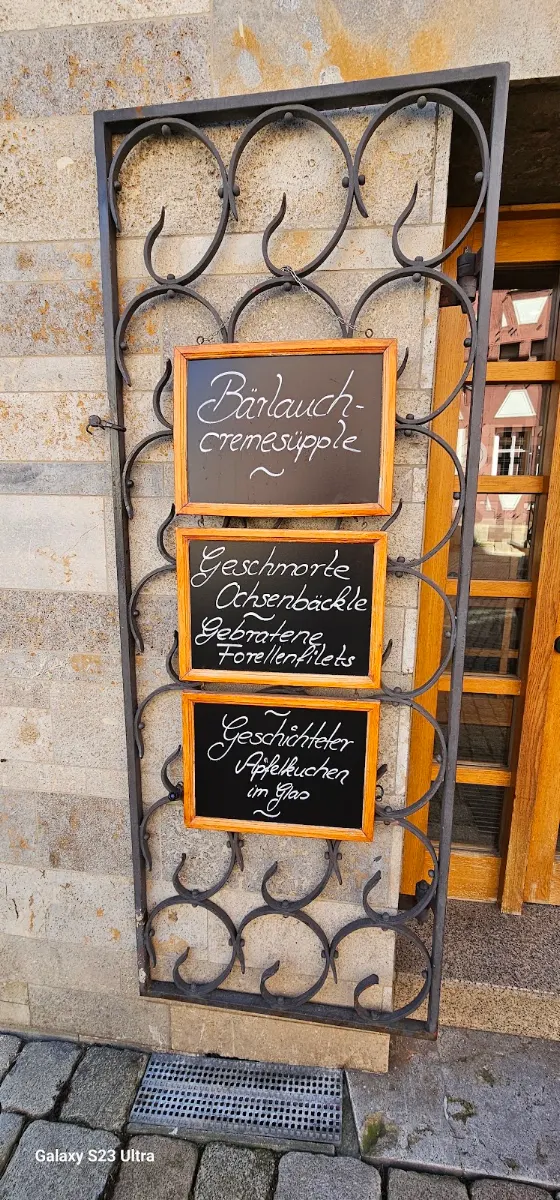 Bärlauch-
cremesüpple
~
Geschmorte
Ochsenbäckle
~
Gebratene
Forellenfilets
~
Geschichteter
Apfelkuchen
im Glas
~
Galaxy S23 Ultra